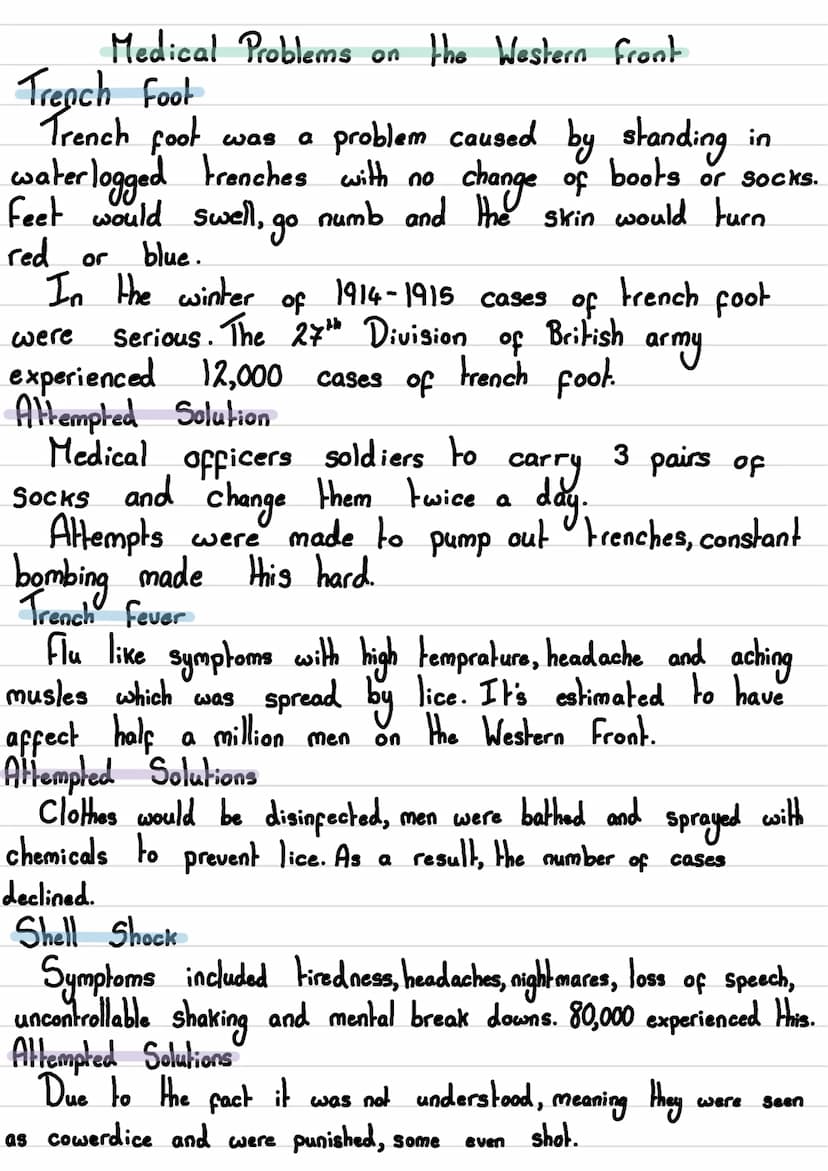 Medical Problems on the Western Front
Trench Foot
Trench foot was a problem caused by standing in
waterlogged trenches with no change of boots or socks.
Feet would swell, go numb and the skin would turn
red or blue.
In the winter of 1914-1915 cases of trench foot
were serious. The 27th Division of British army
experienced 12,000 cases of trench foot.
Attempted Solution
Medical officers soldiers to carry 3 pairs of
socks and change them twice a day.
Attempts were made to pump out trenches, constant
bombing made this hard.
Trench Fever
Flu like symptoms with high temprature, headache and aching
musles which was spread by lice. It's estimated to have
affect half a million men on the Western Front.
Attempted Solutions
Clothes would be disinfected, men were bathed and sprayed with
chemicals to prevent lice. As a result, the number of cases
declined.
Shell Shock
Symptoms included tiredness, headaches, nightmares, loss of speech,
uncontrollable shaking and mental break downs. 80,000 experienced this.
Attempted Solutions
Due to the fact it was not understood, meaning they were seen
as cowerdice and were punished, some even shot.